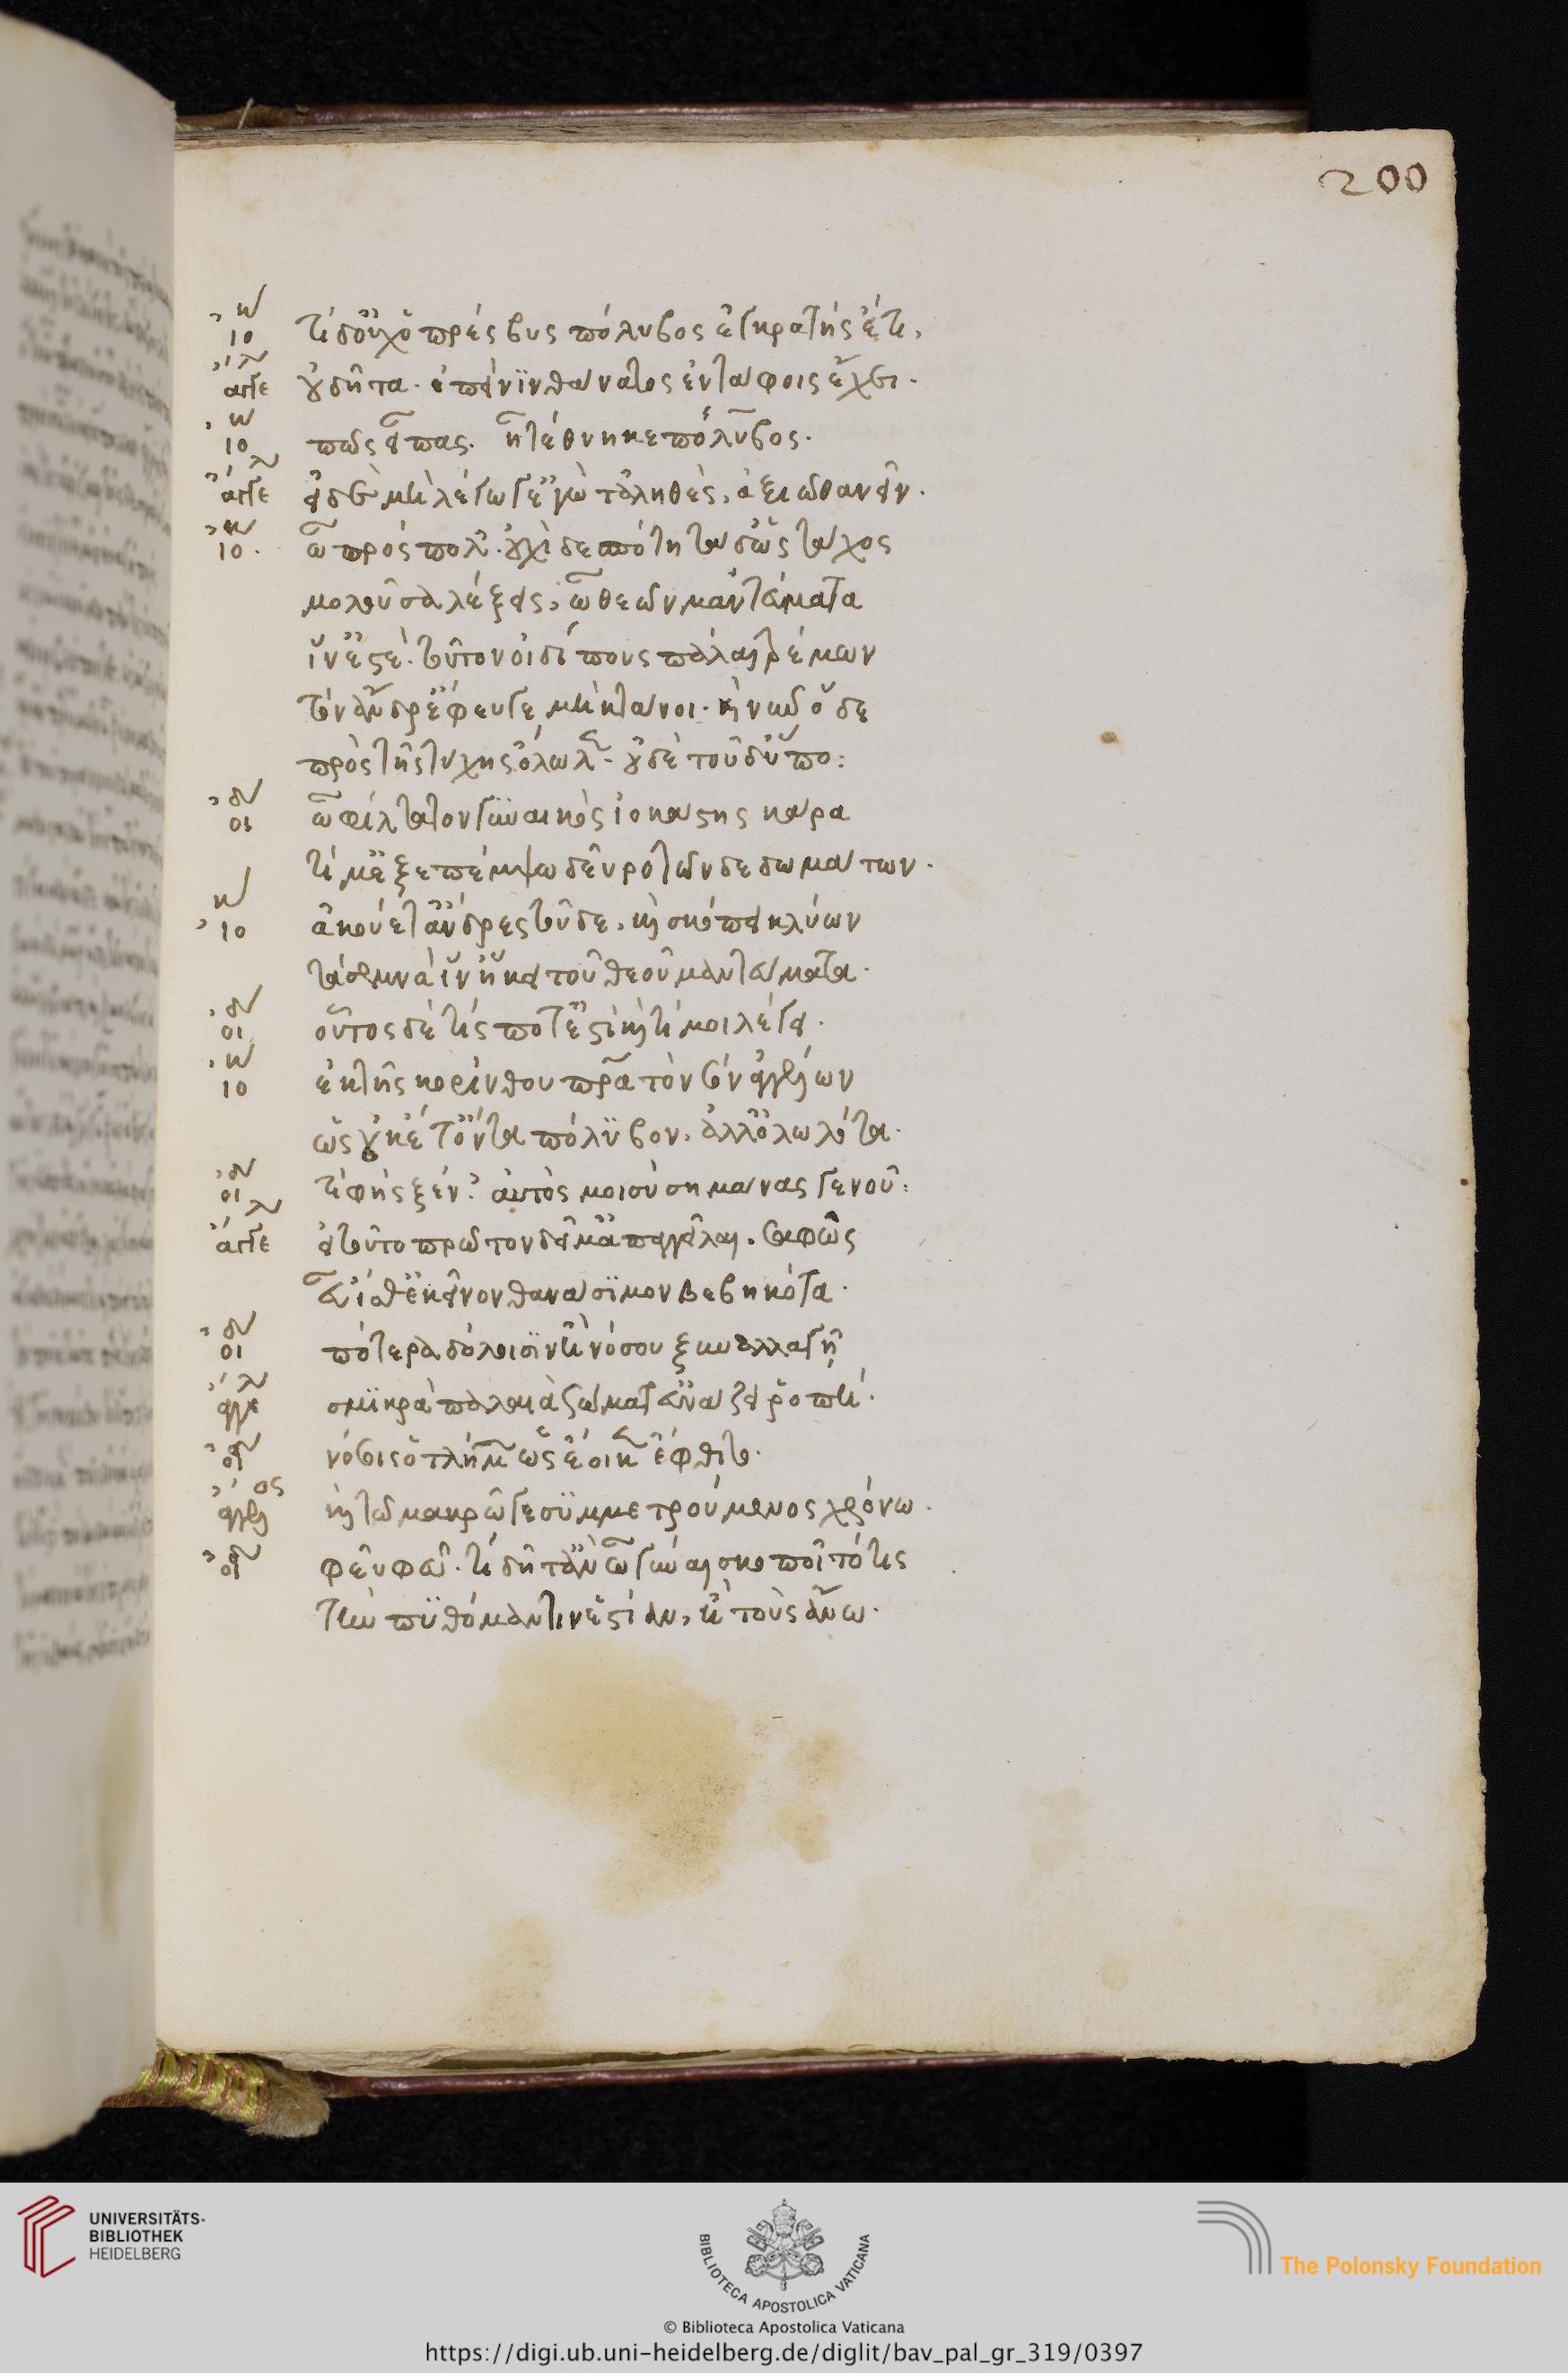 200
ἰο τί δ' οὐχ ὁ πρέσβυς πόλυβος ἐγκρατὴς ἔτι,
ἄγγε οὐ δῆτα. ἐπεί νιν θάνατος ἐν τάφοις ἔχει.
ἰο πῶς εἶπας. ἦ τέθνηκε πόλυβος.
ἄγγε εἰ δὲ μὴ λέγω γ' ἐγὼ τἀληθὲς, ἀξιῶ θανεῖν.
ἰο ὦ πρόσπολ'. οὐχὶ δεσπότη τάδ' ὡς τάχος
μολοῦσα λέξεις, ὦ θεῶν μαντεύματα
ἵν' ἐστέ. τοῦτον οἰδίπους πάλαι τρέμων
τὸν ἄνδρ' ἔφευγε μὴ κτάνοι. καὶ νῦν ὅδε
πρὸς τῆς τύχης ὄλωλεν. οὐδὲ τοῦδ' ὕπο:
οἰ ὦ φίλτατον γύναικὸς ἰοκάστης κάρα
τί μ' ἐξεπέμψω δεῦρο τῶνδε δωμάτων.
ἰο ἀκούετ' ἄνδρες τοῦδε, καὶ σκόπει κλύων
τὰ σεμνὰ ἵν' ἥκει τοῦ θεοῦ μαντεύματα.
οἰ οὗτος δὲ τίς ποτ' ἐστὶ καὶ τί μοι λέγει.
ἰο ἐκ τῆς κορίνθου πρα τὸν σὸν ἀγγελῶν
ὡς οὐκέτ' ὄντα πόλυβον, ἀλλ' ὀλωλότα.
οἰ τί φής ξέν'. αὐτὸς μοι σύ σημάνας γενοῦ:
ἄγγε εἰ τοῦτο πρῶτον δεῖ μ' ἀπαγγεῖλαι. σαφῶς
εὖ ἴσθ' ἐκεῖνον θανάσιμον βεβηκότα.
οἰ πότερα δόλοισιν ἢ νόσου ξυναλλαγῆ
ἄγγε σμικρὰ παλαιὰ σώματ' εὐνάζει ῥοπή.
οἰ νόσοις ὁ τλήμων ὡς ἔοικεν ἔφθιτο.
ἄγγελος καὶ τῶ μακρῶ γε συμμετρούμενος χρόνω.
οἰ φεῦ φεῦ. τί δῆτ' ἂν ὦ γύναι σκοποῖτό τις
τὴν πυθόμαντιν ἑστίαν, ἢ τοὺς ἄνω.
UNIVERSITÄTS-
BIBLIOTHEK
HEIDELBERG
BIBLIOTECA APOSTOLICA VATICANA
The Polonsky Foundation
© Biblioteca Apostolica Vaticana
https://digi.ub.uni-heidelberg.de/diglit/bav_pal_gr_319/0397